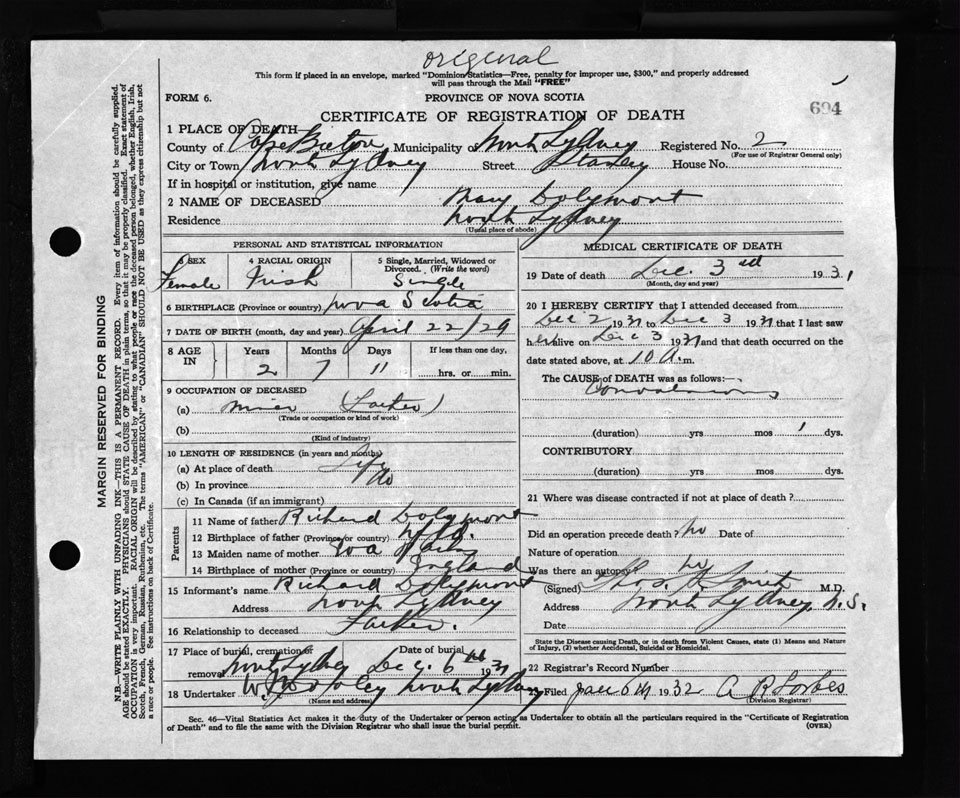 original
This form if placed in an envelope, marked "Dominion Statistics—Free, penalty for improper use, $300," and properly addressed
will pass through the Mail "FREE"
FORM 6.
PROVINCE OF NOVA SCOTIA
694
CERTIFICATE OF REGISTRATION OF DEATH
1 PLACE OF DEATH—
County of Cape Breton Municipality of North Sydney Registered No. 2
(For use of Registrar General only)
City or Town North Sydney Street Stanley House No.
If in hospital or institution, give name
2 NAME OF DECEASED Mary Dolymont
Residence North Sydney
(Usual place of abode)
PERSONAL AND STATISTICAL INFORMATION
3 SEX Female
4 RACIAL ORIGIN Irish
5 Single, Married, Widowed or Divorced. (Write the word) Single
6 BIRTHPLACE (Province or country) Nova Scotia
7 DATE OF BIRTH (month, day and year) April 22/29
8 AGE IN Years 2 Months 7 Days 11 If less than one day, hrs. or min.
9 OCCUPATION OF DECEASED
(a) miner (Father)
(Trade or occupation or kind of work)
(b)
(Kind of industry)
10 LENGTH OF RESIDENCE (in years and months)
(a) At place of death Life
(b) In province do
(c) In Canada (if an immigrant)
Parents
11 Name of father Richard Dolymont
12 Birthplace of father (Province or country) Nfld.
13 Maiden name of mother
14 Birthplace of mother (Province or country) England
15 Informant's name Richard Dolymont
Address North Sydney
16 Relationship to deceased Father.
17 Place of burial, cremation or removal North Sydney Date of burial Dec. 6th 1931
18 Undertaker North Sydney
(Name and address)
MEDICAL CERTIFICATE OF DEATH
19 Date of death Dec. 3rd 1931
(Month, day and year)
20 I HEREBY CERTIFY that I attended deceased from
Dec 2 1931 to Dec 3 1931 that I last saw
her alive on Dec 3 1931 and that death occurred on the
date stated above, at 10 A.m.
The CAUSE of DEATH was as follows:—
Convulsions
(duration) yrs mos 1 dys.
CONTRIBUTORY
(duration) yrs mos dys.
21 Where was disease contracted if not at place of death?
Did an operation precede death? No Date of
Nature of operation
Was there an autopsy? No
(Signed) Smith M.D.
Address North Sydney N.S.
Date
State the Disease causing Death, or in death from Violent Causes, state (1) Means and Nature
of Injury, (2) whether Accidental, Suicidal or Homicidal.
22 Registrar's Record Number
23 Filed Jan 6th 1932 A R Forbes
(Division Registrar)
Sec. 46—Vital Statistics Act makes it the duty of the Undertaker or person acting as Undertaker to obtain all the particulars required in the "Certificate of Registration
of Death" and to file the same with the Division Registrar who shall issue the burial permit.
(OVER)
MARGIN RESERVED FOR BINDING
N.B.—WRITE PLAINLY WITH UNFADING INK—THIS IS A PERMANENT RECORD. Every item of information should be carefully supplied.
AGE should be stated EXACTLY. PHYSICIANS should STATE CAUSE OF DEATH in plain terms, so that it may be properly classified. Exact statement of
OCCUPATION is very important. RACIAL ORIGIN will be described by stating to what people or race the deceased person belonged, whether English, Irish,
Scotch, French, German, Russian, Ruthenian, etc. The terms "AMERICAN" or "CANADIAN" SHOULD NOT BE USED as they express citizenship but not
a race or people. See instructions on back of Certificate.